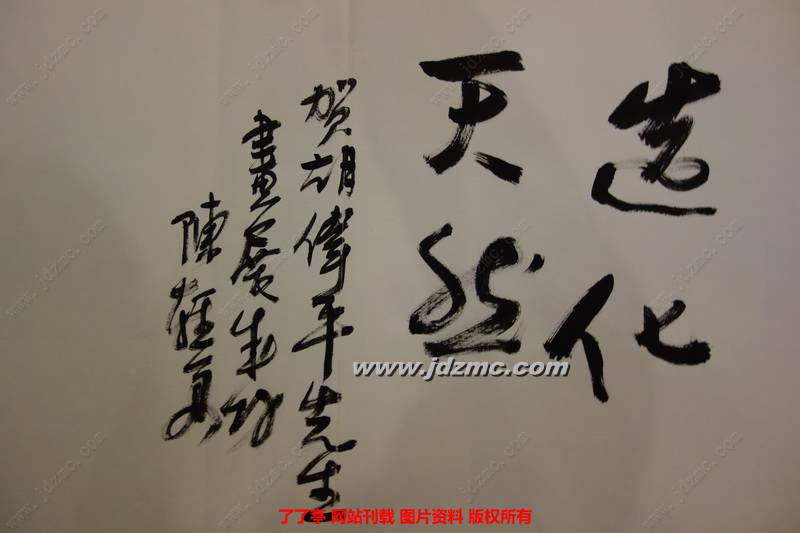 造化
天然
賀胡偉平先生
畫展成功
陳
www.jdzmc.com
了了亭 网站刊载 图片资料 版权所有